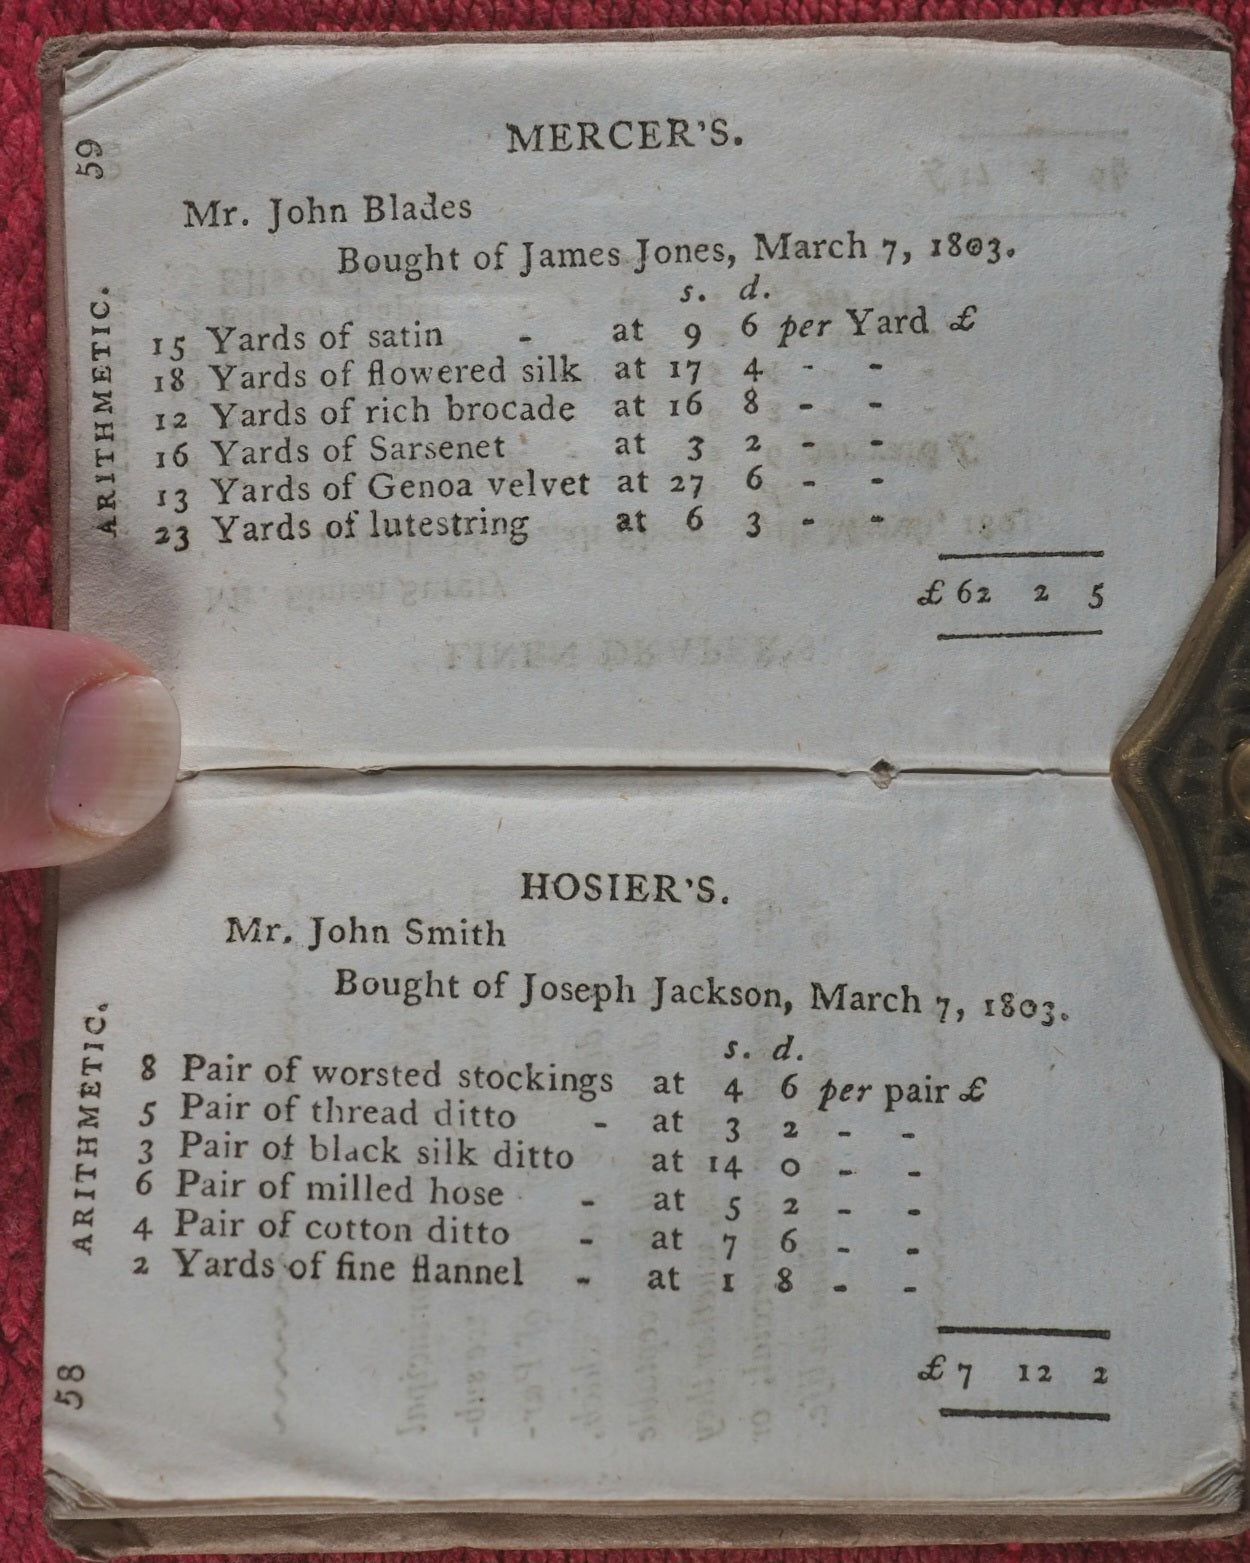 59
ARITHMETIC.
MERCER'S.
Mr. John Blades
Bought of James Jones, March 7, 1803.
s. d.
15 Yards of satin - at 9 6 per Yard £
18 Yards of flowered silk at 17 4 - -
12 Yards of rich brocade at 16 8 - -
16 Yards of Sarsenet at 3 2 - -
13 Yards of Genoa velvet at 27 6 - -
23 Yards of lutestring at 6 3 - -
£ 62 2 5
HOSIER'S.
Mr. John Smith
Bought of Joseph Jackson, March 7, 1803.
s. d.
8 Pair of worsted stockings at 4 6 per pair £
5 Pair of thread ditto - at 3 2 - -
3 Pair of black silk ditto at 14 0 - -
6 Pair of milled hose - at 5 2 - -
4 Pair of cotton ditto - at 7 6 - -
2 Yards of fine flannel - at 1 8 - -
£ 7 12 2
ARITHMETIC.
58